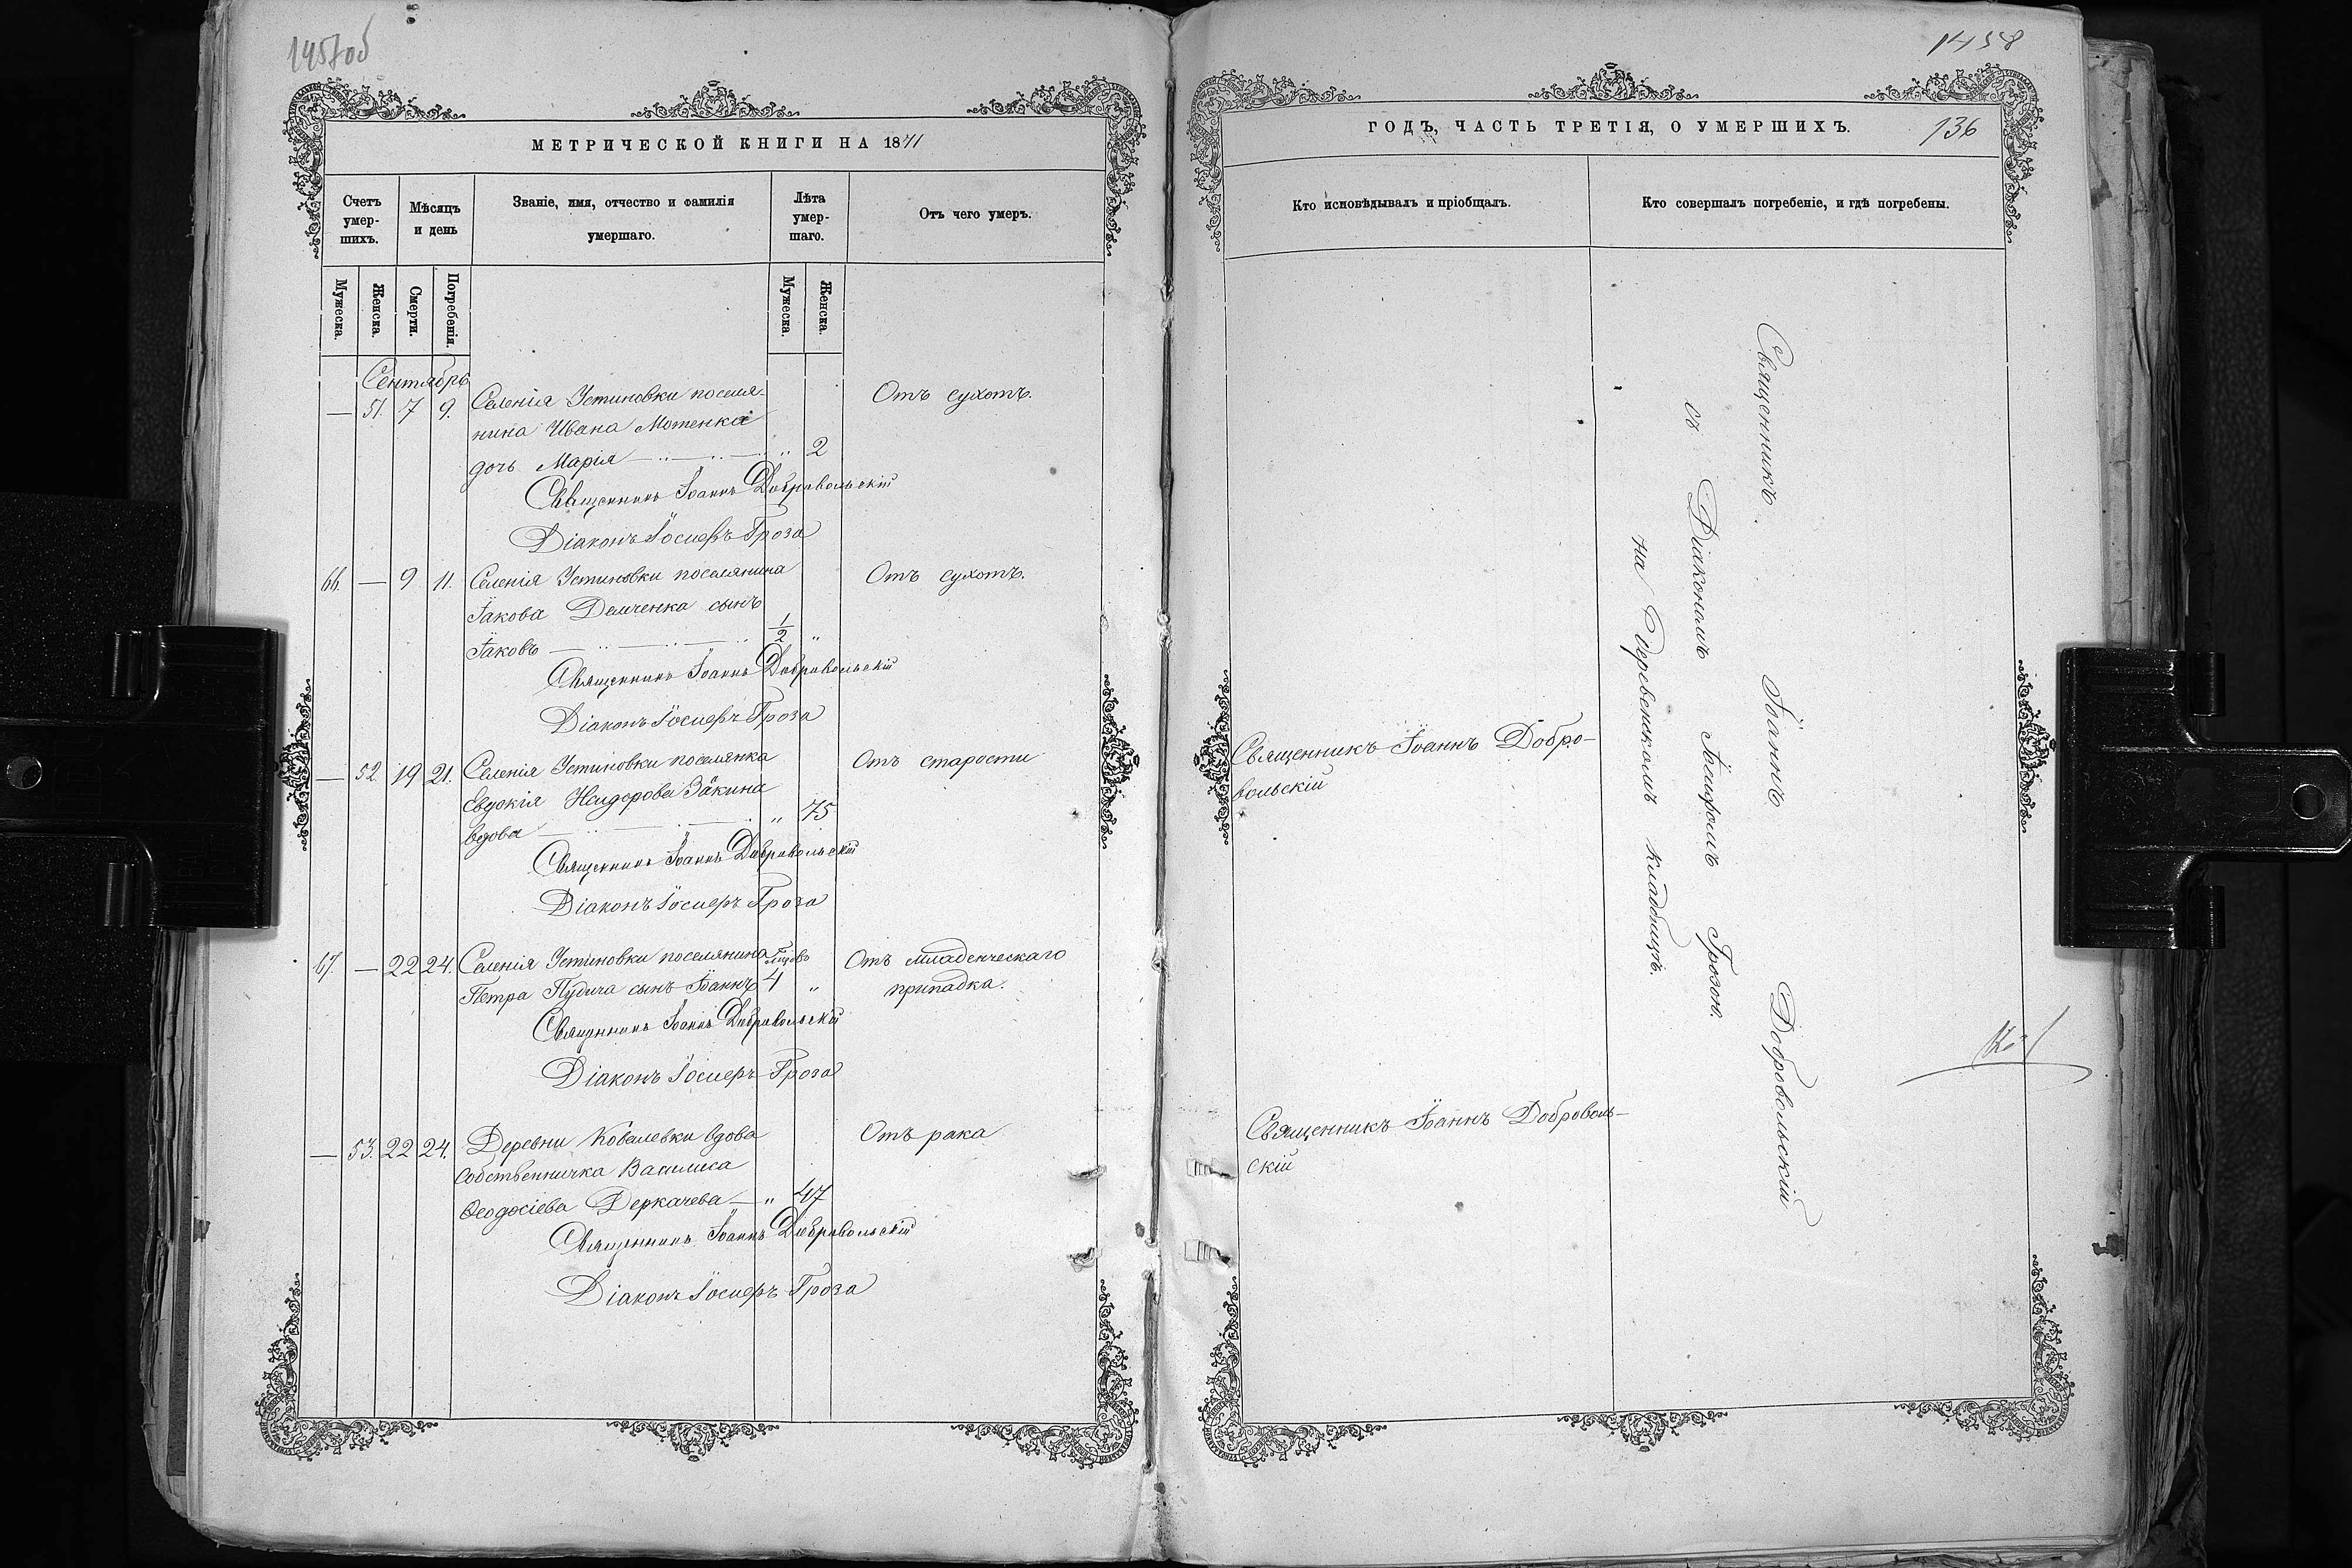 1457об
МЕТРИЧЕСКОЙ КНИГИ НА 1871
Счетъ умер-шихъ.
Мѣсяцъ и день
Званіе, имя, отчество и фамилія умершаго.
Лѣта умер-шаго.
Отъ чего умеръ.
Мужеска.
Женска.
Смерти.
Погребенія.
Мужеска.
Женска.
Сентябрь
— 51. 7 9. Селенія Устиновки поселя- Отъ сухотъ.
нина Ивана Мотенка
дочь Марія — „ — „ — „ 2
Священникъ Іоаннъ Добровольскій
Діаконъ Іосифъ Гроза
66. — 9 11. Селенія Устиновки поселянина Отъ сухотъ.
Іакова Демченка сынъ
Іаковъ — „ — „ — „ 1/2 „
Священникъ Іоаннъ Добровольскій
Діаконъ Іосифъ Гроза
— 52 19 21. Селенія Устиновки поселянка Отъ старости
Евдокія Исидорова Заѣкина
вдова — „ — „ — „ 75
Священникъ Іоаннъ Добровольскій
Діаконъ Іосифъ Гроза
67. — 22 24. Селенія Устиновки поселянина Отъ младенческаго
Петра Пудича сынъ Іоаннъ 4 „ припадка.
Священникъ Іоаннъ Добровольскій
Діаконъ Іосифъ Гроза
— 53. 22 24. Деревни Ковалевки вдова Отъ рака
собственничка Василиса
Ѳеодосіева Деркачева — „ 47
Священникъ Іоаннъ Добровольскій
Діаконъ Іосифъ Гроза
1458
ГОДЪ, ЧАСТЬ ТРЕТІЯ, О УМЕРШИХЪ.
136
Кто исповѣдывалъ и пріобщалъ.
Кто совершалъ погребеніе, и гдѣ погребены.
Священникъ Іоаннъ Добро-
вольскій
Священникъ Іоаннъ Доброволь-
скій
Священникъ Іоаннъ Добровольскій
съ Діакономъ Іосифомъ Грозою.
на Деревенскомъ кладбищѣ.